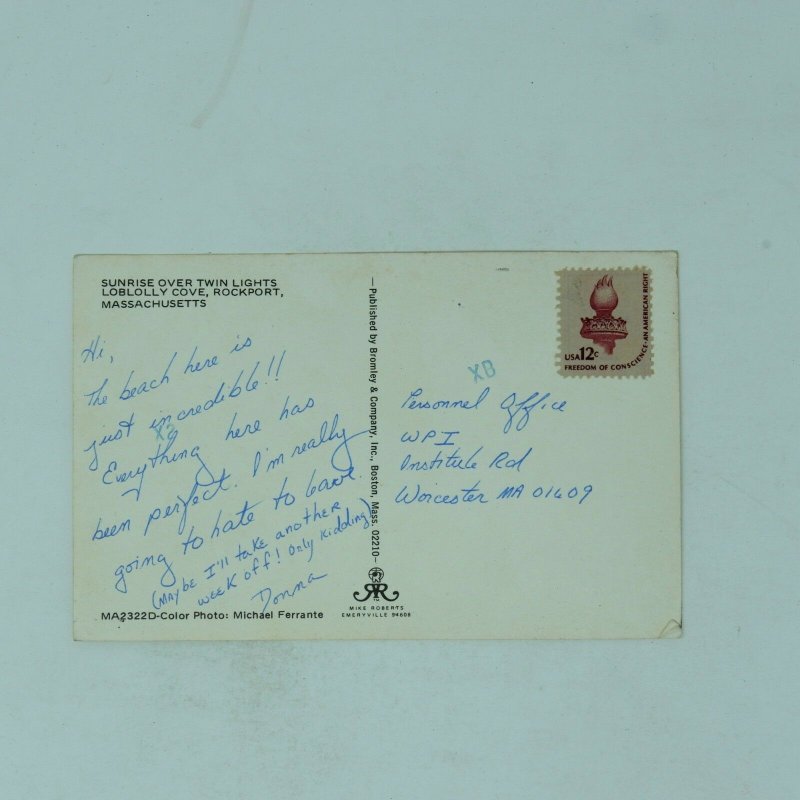 SUNRISE OVER TWIN LIGHTS
LOBLOLLY COVE, ROCKPORT,
MASSACHUSETTS
Hi,
The beach here is
just incredible!!
Everything here has
been perfect. I'm really
going to hate to leave.
(MAYBE I'll take another
week off! Only kidding)
Donna
MA2322D-Color Photo: Michael Ferrante
—Published by Bromley & Company, Inc., Boston, Mass. 02210—
MIKE ROBERTS
EMERYVILLE 94608
X3
XB
USA 12c
FREEDOM OF CONSCIENCE-AN AMERICAN RIGHT
Personnel Office
WPI
Institute Rd
Worcester MA 01609